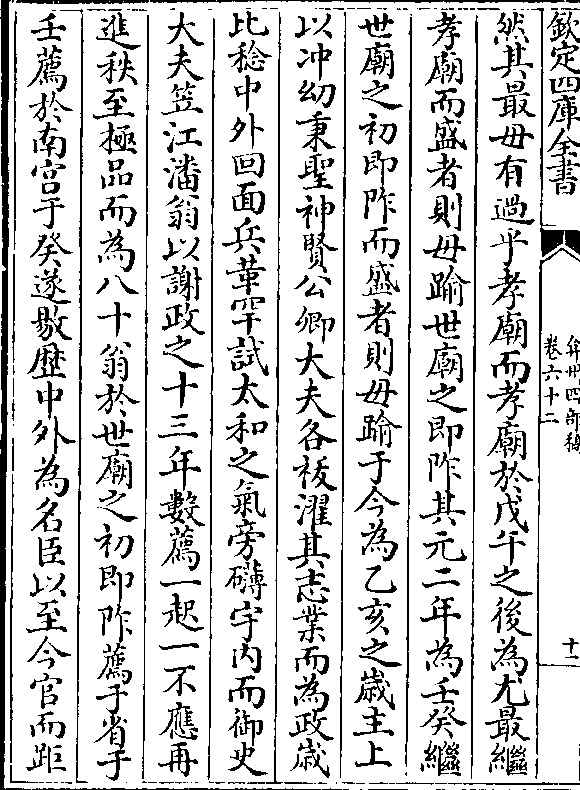 欽定四庫全書
弇州四部稿
卷六十二
十一
然其最毋有過乎孝廟而孝廟於戊午之後為尤最繼
孝廟而盛者則毋踰世廟之即阼其元二年為壬癸繼
世廟之初即阼而盛者則毋踰于今為乙亥之歲主上
以冲幼秉聖神賢公卿大夫各袚濯其志業而為政歲
比稔中外回面兵革罕試太和之氣旁礴宇内而御史
大夫笠江潘翁以謝政之十三年數薦一起一不應再
進秩至極品而為八十翁於世廟之初即阼薦于省于
壬薦於南宫于癸遂敭歴中外為名臣以至今官而距